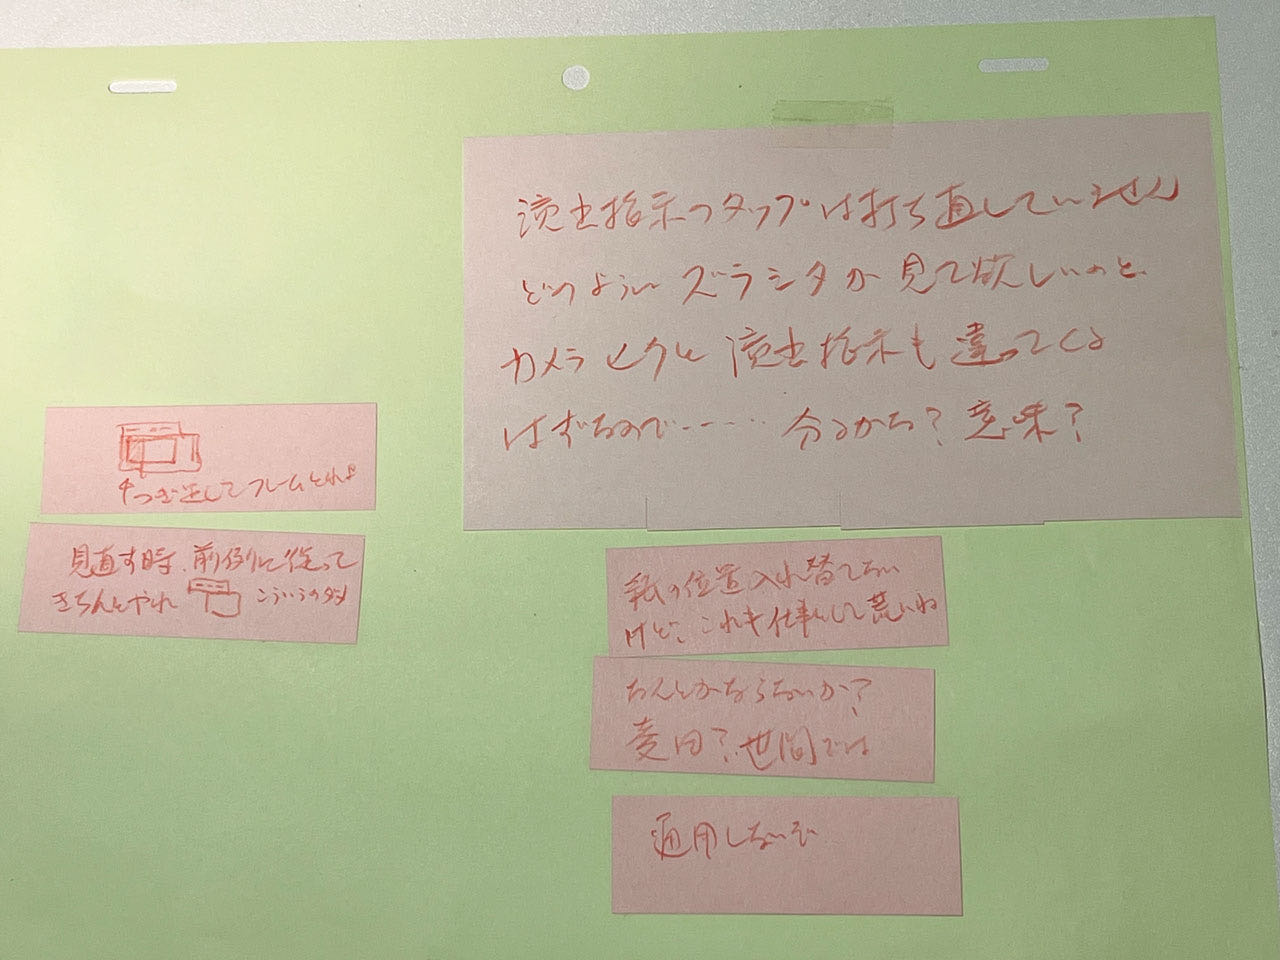 演出指示のタップは打ち直していません
どのように ズラシタか 見て欲しいのと、
カメラ ワクと 演出指示も 違ってくる
はずなので……… 分るかな？ 意味？
つぎ足してフレームとれよ
見直す時、前例に従って
きちんとやれ こういうのダメ
紙の位置入れ替てない
けど、これも仕事として荒いね
なんとかならないか？
麦田？ 世間では
通用しないぞ